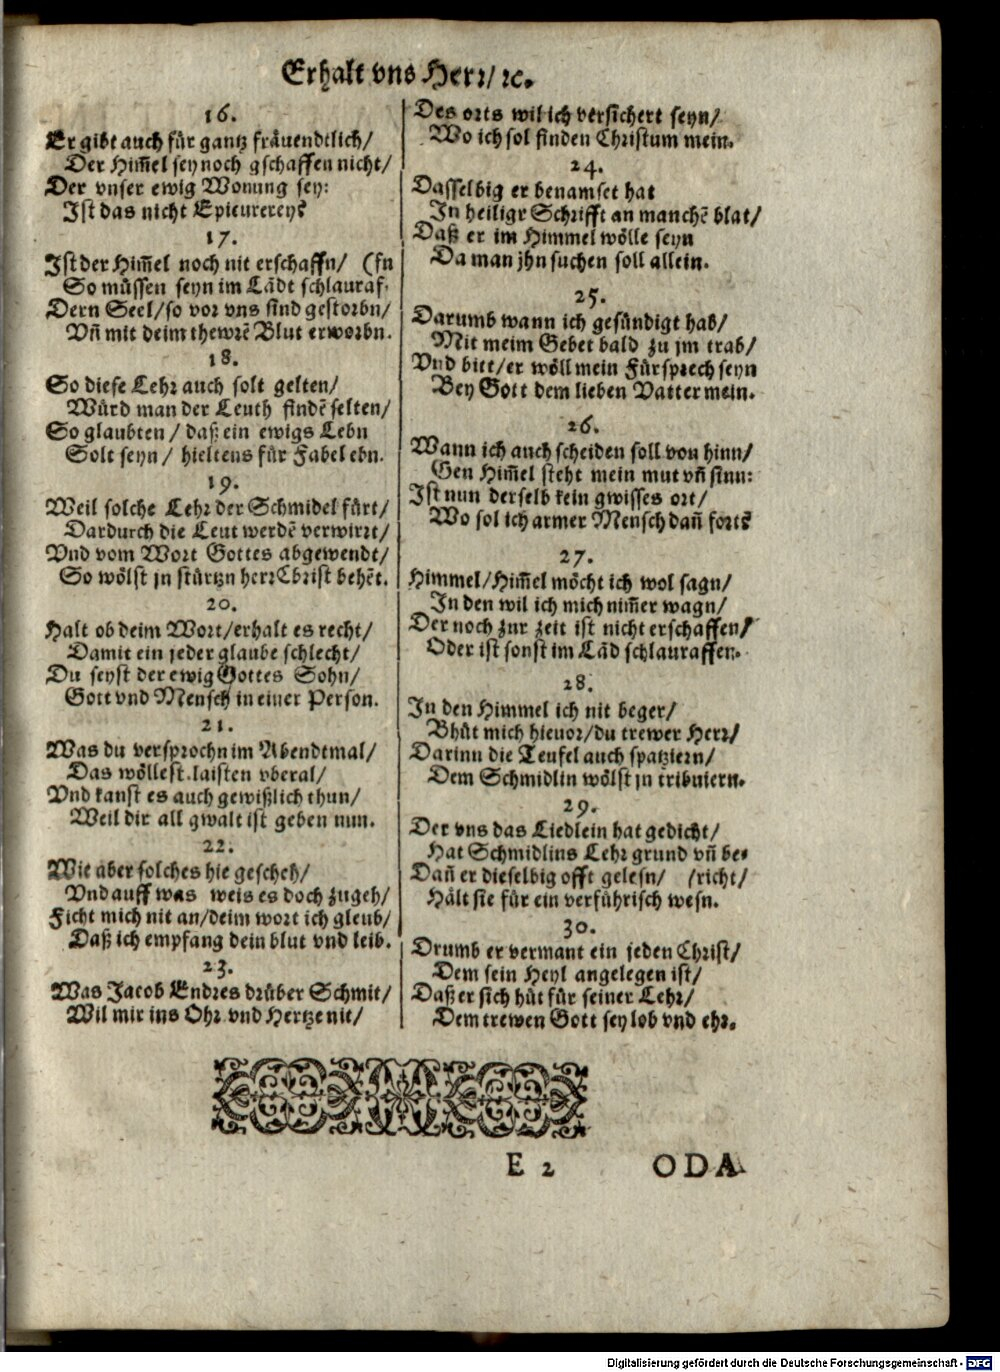 Erhalt vns Herr/ ꝛc.
16.
Er gibt auch für gantz fräuendtlich/
Der Him̃el sey noch gschaffen nicht/
Der vnser ewig Wonung sey:
Ist das nicht Epicurerey?
17.
Ist der Him̃el noch nit erschaffn/ (fn
So müssen seyn im Lãdt schlauraf-
Dern Seel/so vor vns sind gestorbn/
Vñ mit deim thewrẽ Blut erworbn.
18.
So diese Lehr auch solt gelten/
Würd man der Leuth findẽ selten/
So glaubten/ daß ein ewigs Lebn
Solt seyn/ hieltens für Fabel ebn.
19.
Weil solche Lehr der Schmidel fürt/
Dardurch die Leut werdẽ verwirrt/
Vnd vom Wort Gottes abgewendt/
So wölst jn stürtzn herr Christ behẽt.
20.
Halt ob deim Wort/erhalt es recht/
Damit ein jeder glaube schlecht/
Du seyst der ewig Gottes Sohn/
Gott vnd Mensch in einer Person.
21.
Was du versprochn im Abendtmal/
Das wöllest laisten vberal/
Vnd kanst es auch gewißlich thun/
Weil dir all gwalt ist geben nun.
22.
Wie aber solches hie gescheh/
Vnd auff was weis es doch zugeh/
Ficht mich nit an/deim wort ich gleub/
Daß ich empfang dein blut vnd leib.
23.
Was Jacob Endres drüber Schmit/
Wil mir ins Ohr vnd Hertze nit/
Des orts wil ich versichert seyn/
Wo ich sol finden Christum mein.
24.
Dasselbig er benamset hat
In heiligr Schrifft an manchẽ blat/
Daß er im Himmel wölle seyn
Da man jhn suchen soll allein.
25.
Darumb wann ich gesündigt hab/
Mit meim Gebet bald zu jm trab/
Vnd bitt/er wöll mein Fürsprech seyn
Bey Gott dem lieben Vatter mein.
26.
Wann ich auch scheiden soll von hinn/
Gen Him̃el steht mein mut vñ sinn:
Ist nun derselb kein gwisses ort/
Wo sol ich armer Mensch dañ fort?
27.
Himmel/Him̃el möcht ich wol sagn/
In den wil ich mich nim̃er wagn/
Der noch zur zeit ist nicht erschaffen/
Oder ist sonst im Lãd schlauraffen.
28.
In den Himmel ich nit beger/
Bhüt mich hieuor/du trewer Herr/
Darinn die Teufel auch spatziern/
Dem Schmidlin wölst jn tribuiern.
29.
Der vns das Liedlein hat gedicht/
Hat Schmidlins Lehr grund vñ be-
Dañ er dieselbig offt gelesn/ (richt/
Hält sie für ein verführisch wesn.
30.
Drumb er vermant ein jeden Christ/
Dem sein Heyl angelegen ist/
Daß er sich hüt für seiner Lehr/
Dem trewen Gott sey lob vnd ehr.
E 2 ODA
Digitalisierung gefördert durch die Deutsche Forschungsgemeinschaft - DFG